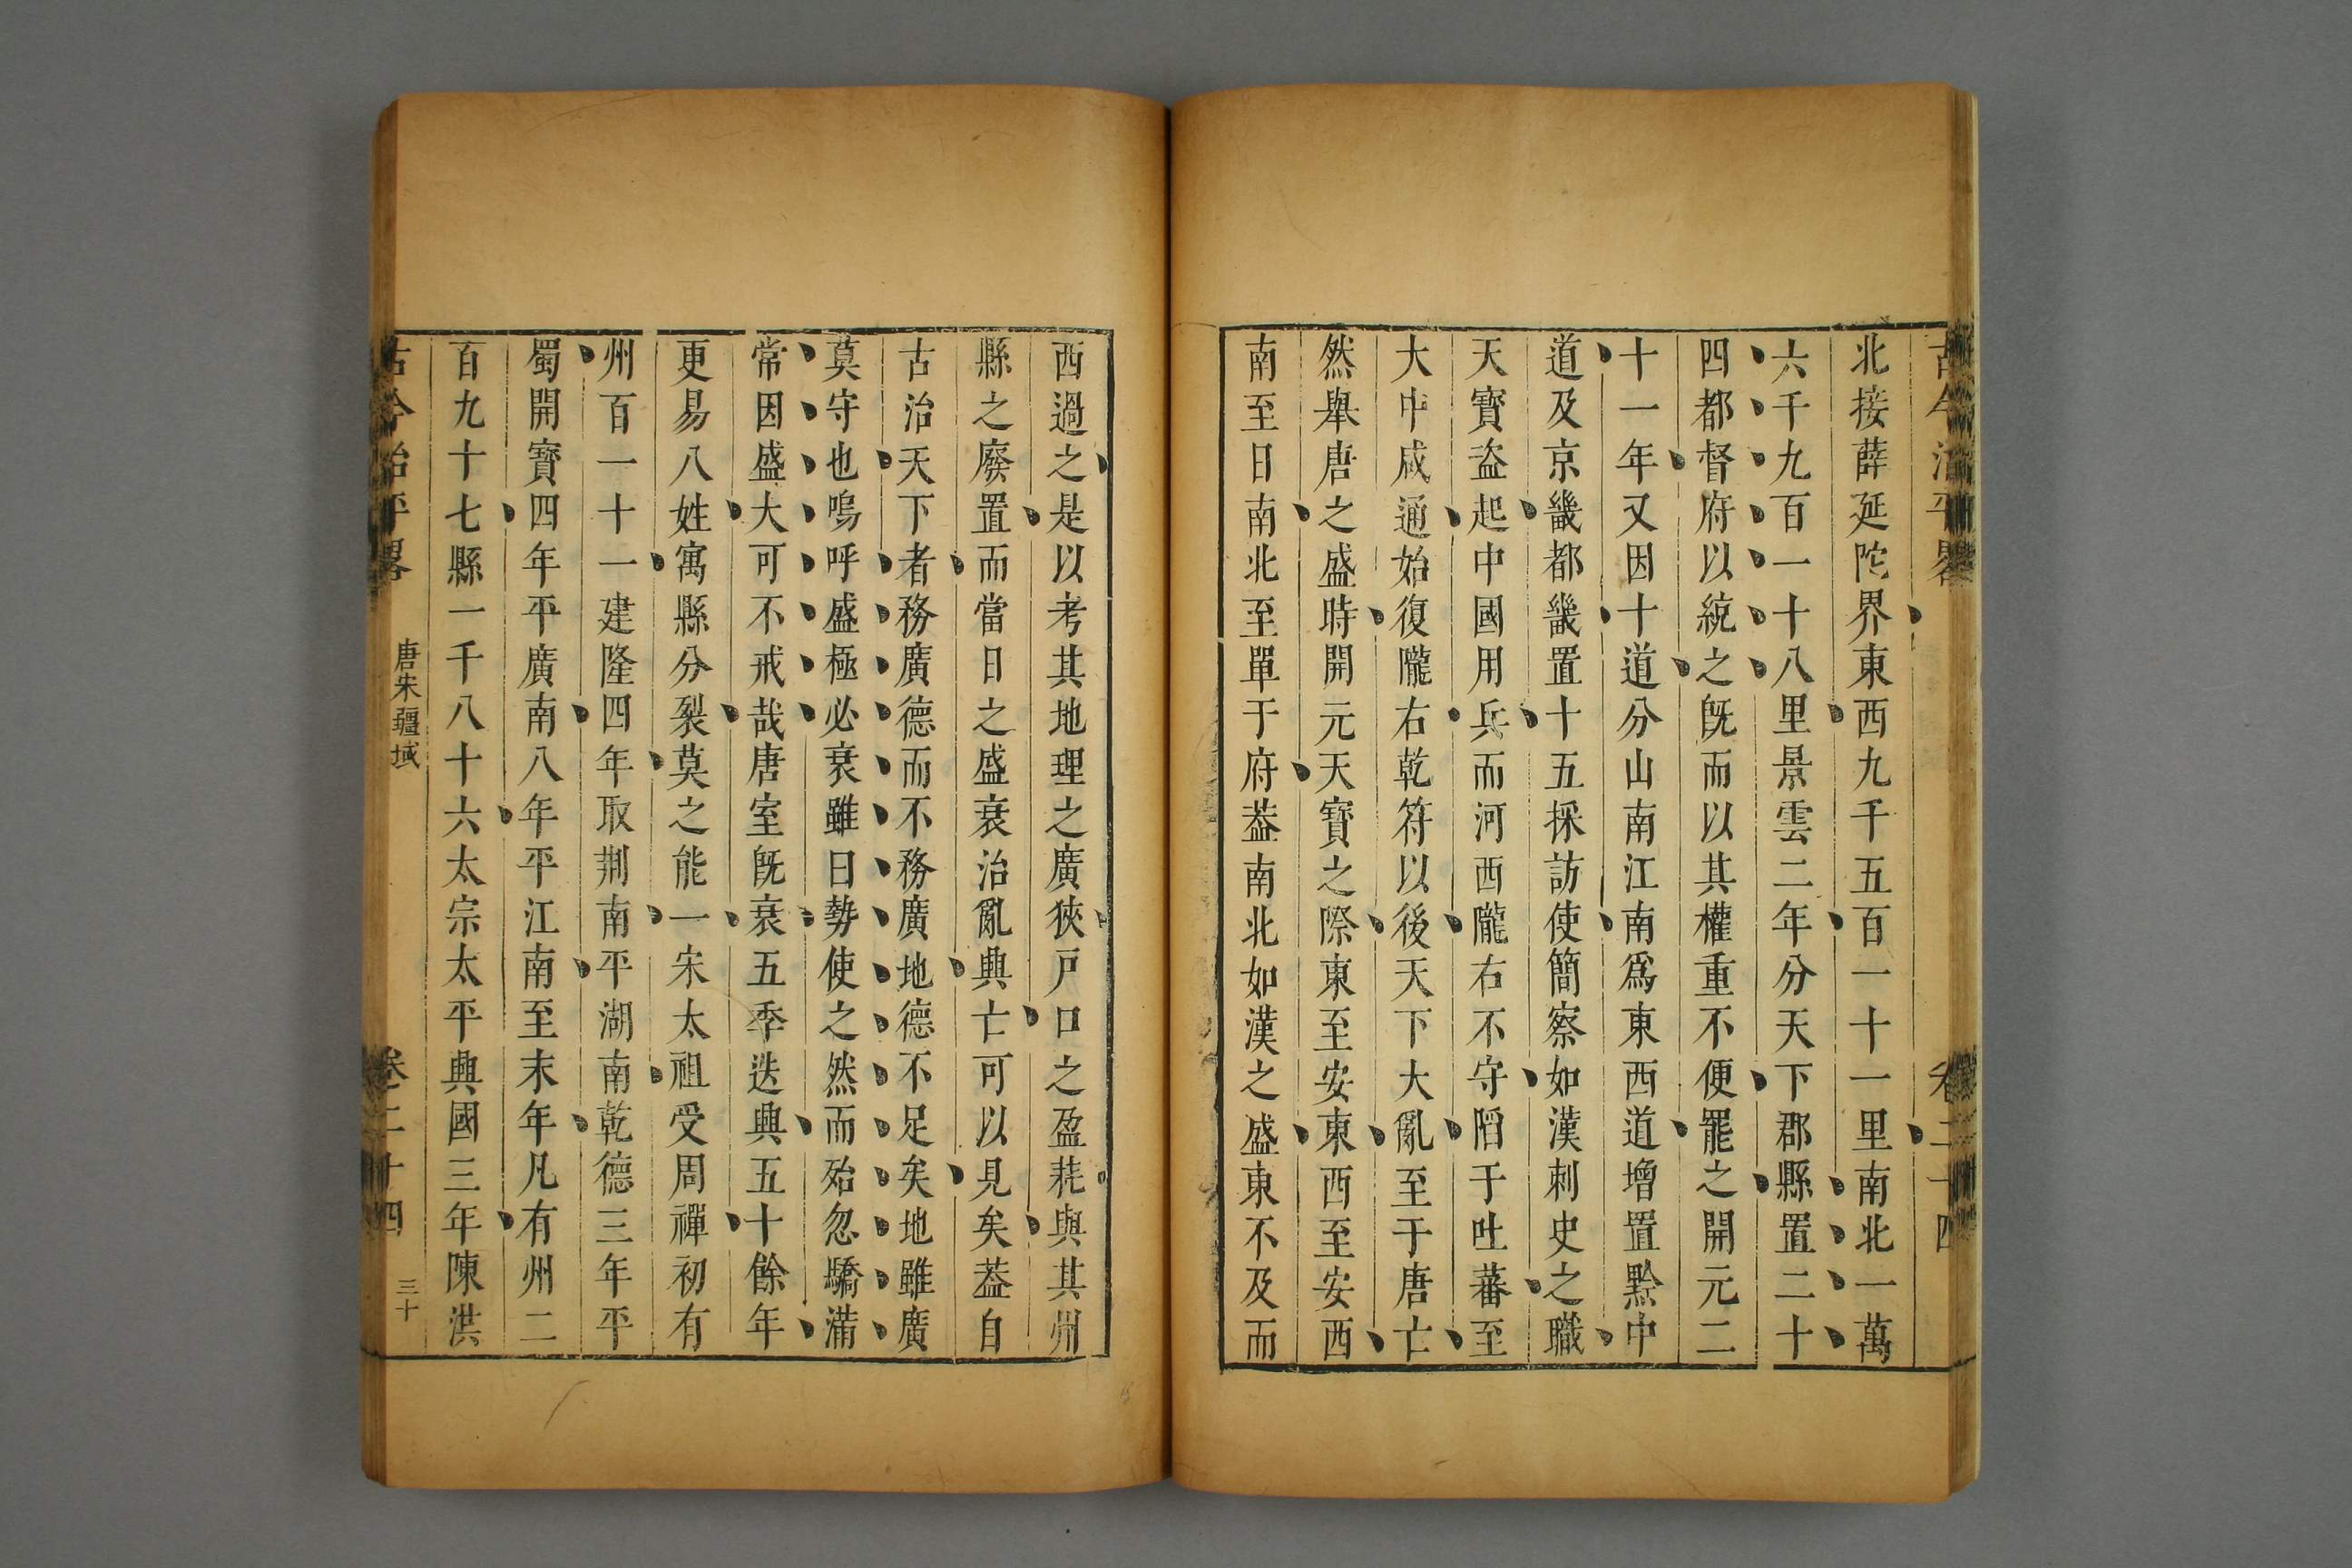 古今治平畧
卷二十四
北接薛延陀界東西九千五百一十一里南北一萬
六千九百一十八里景雲二年分天下郡縣置二十
四都督府以統之旣而以其權重不便罷之開元二
十一年又因十道分山南江南爲東西道增置黔中
道及京畿都畿置十五採訪使簡察如漢刺史之職
天寶盗起中國用兵而河西隴右不守陷于吐蕃至
大中咸通始復隴右乾符以後天下大亂至于唐亡
然舉唐之盛時開元天寶之際東至安東西至安西
南至日南北至單于府葢南北如漢之盛東不及而
西過之是以考其地理之廣狹戸口之盈耗與其州
縣之廢置而當日之盛衰治亂興亡可以見矣葢自
古治天下者務廣德而不務廣地德不足矣地雖廣
莫守也嗚呼盛極必衰雖曰勢使之然而殆忽驕滿
常因盛大可不戒哉唐室旣衰五季迭興五十餘年
更易八姓寓縣分裂莫之能一宋太祖受周禪初有
州百一十一建隆四年取荆南平湖南乾德三年平
蜀開寶四年平廣南八年平江南至末年凡有州二
百九十七縣一千八十六太宗太平興國三年陳洪
古今治平畧
唐宋疆域
卷二十四
三十